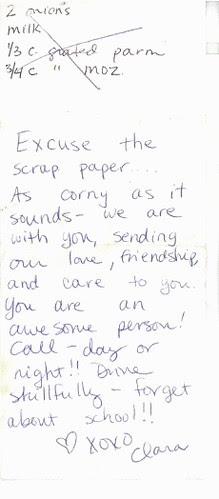 2 onions
milk
1/3 c. grated parm
3/4 c " moz.
Excuse the
scrap paper....
As corny as it
sounds- we are
with you, sending
our love, friendship
and care to you.
You are an
awesome person!
Call - day or
night!! Drive
skillfully - forget
about school!!
♡ xoxo
Clara